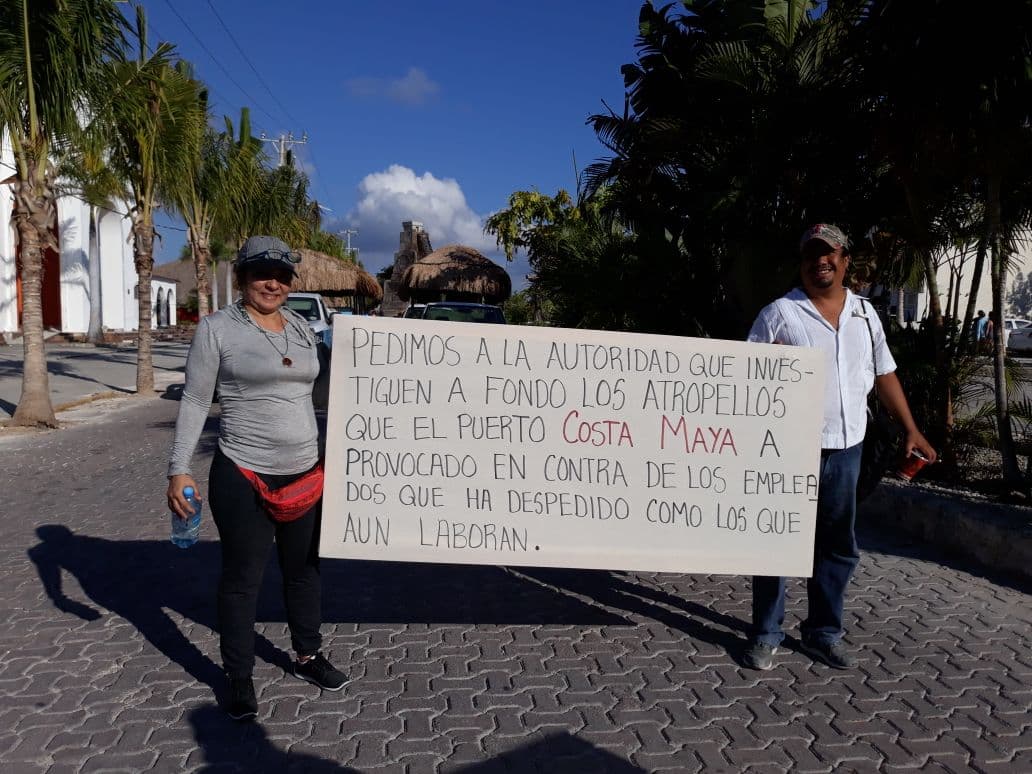 PEDIMOS A LA AUTORIDAD QUE INVES-
TIGUEN A FONDO LOS ATROPELLOS
QUE EL PUERTO COSTA MAYA A
PROVOCADO EN CONTRA DE LOS EMPLEA
DOS QUE HA DESPEDIDO COMO LOS QUE
AUN LABORAN.